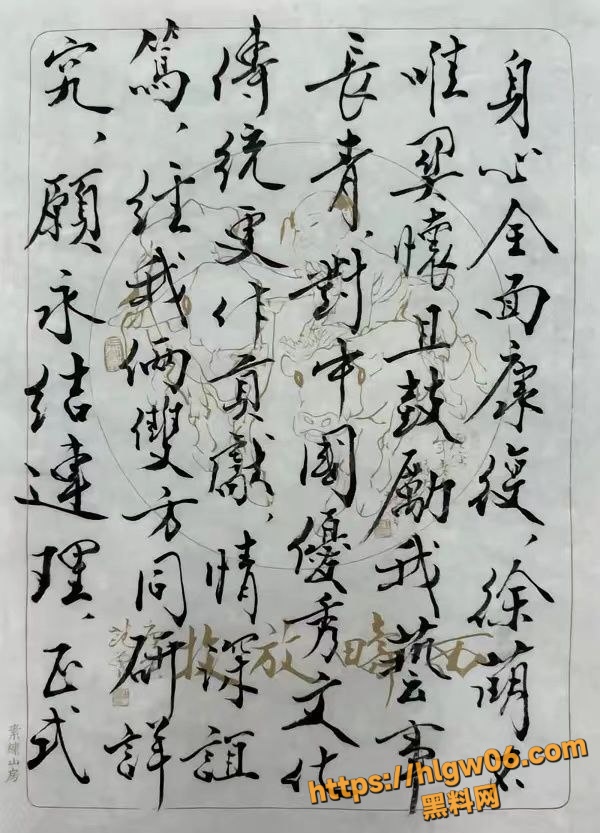 身心全面康復、徐萌不
唯關懷且鼓勵我藝事
長青、對中國優秀文化
傳統更作貢獻、情深誼
篤、經我倆雙方同研詳
究、願永結連理、正式
西疇放牧
山房
https://hlgw06.com
黑料网